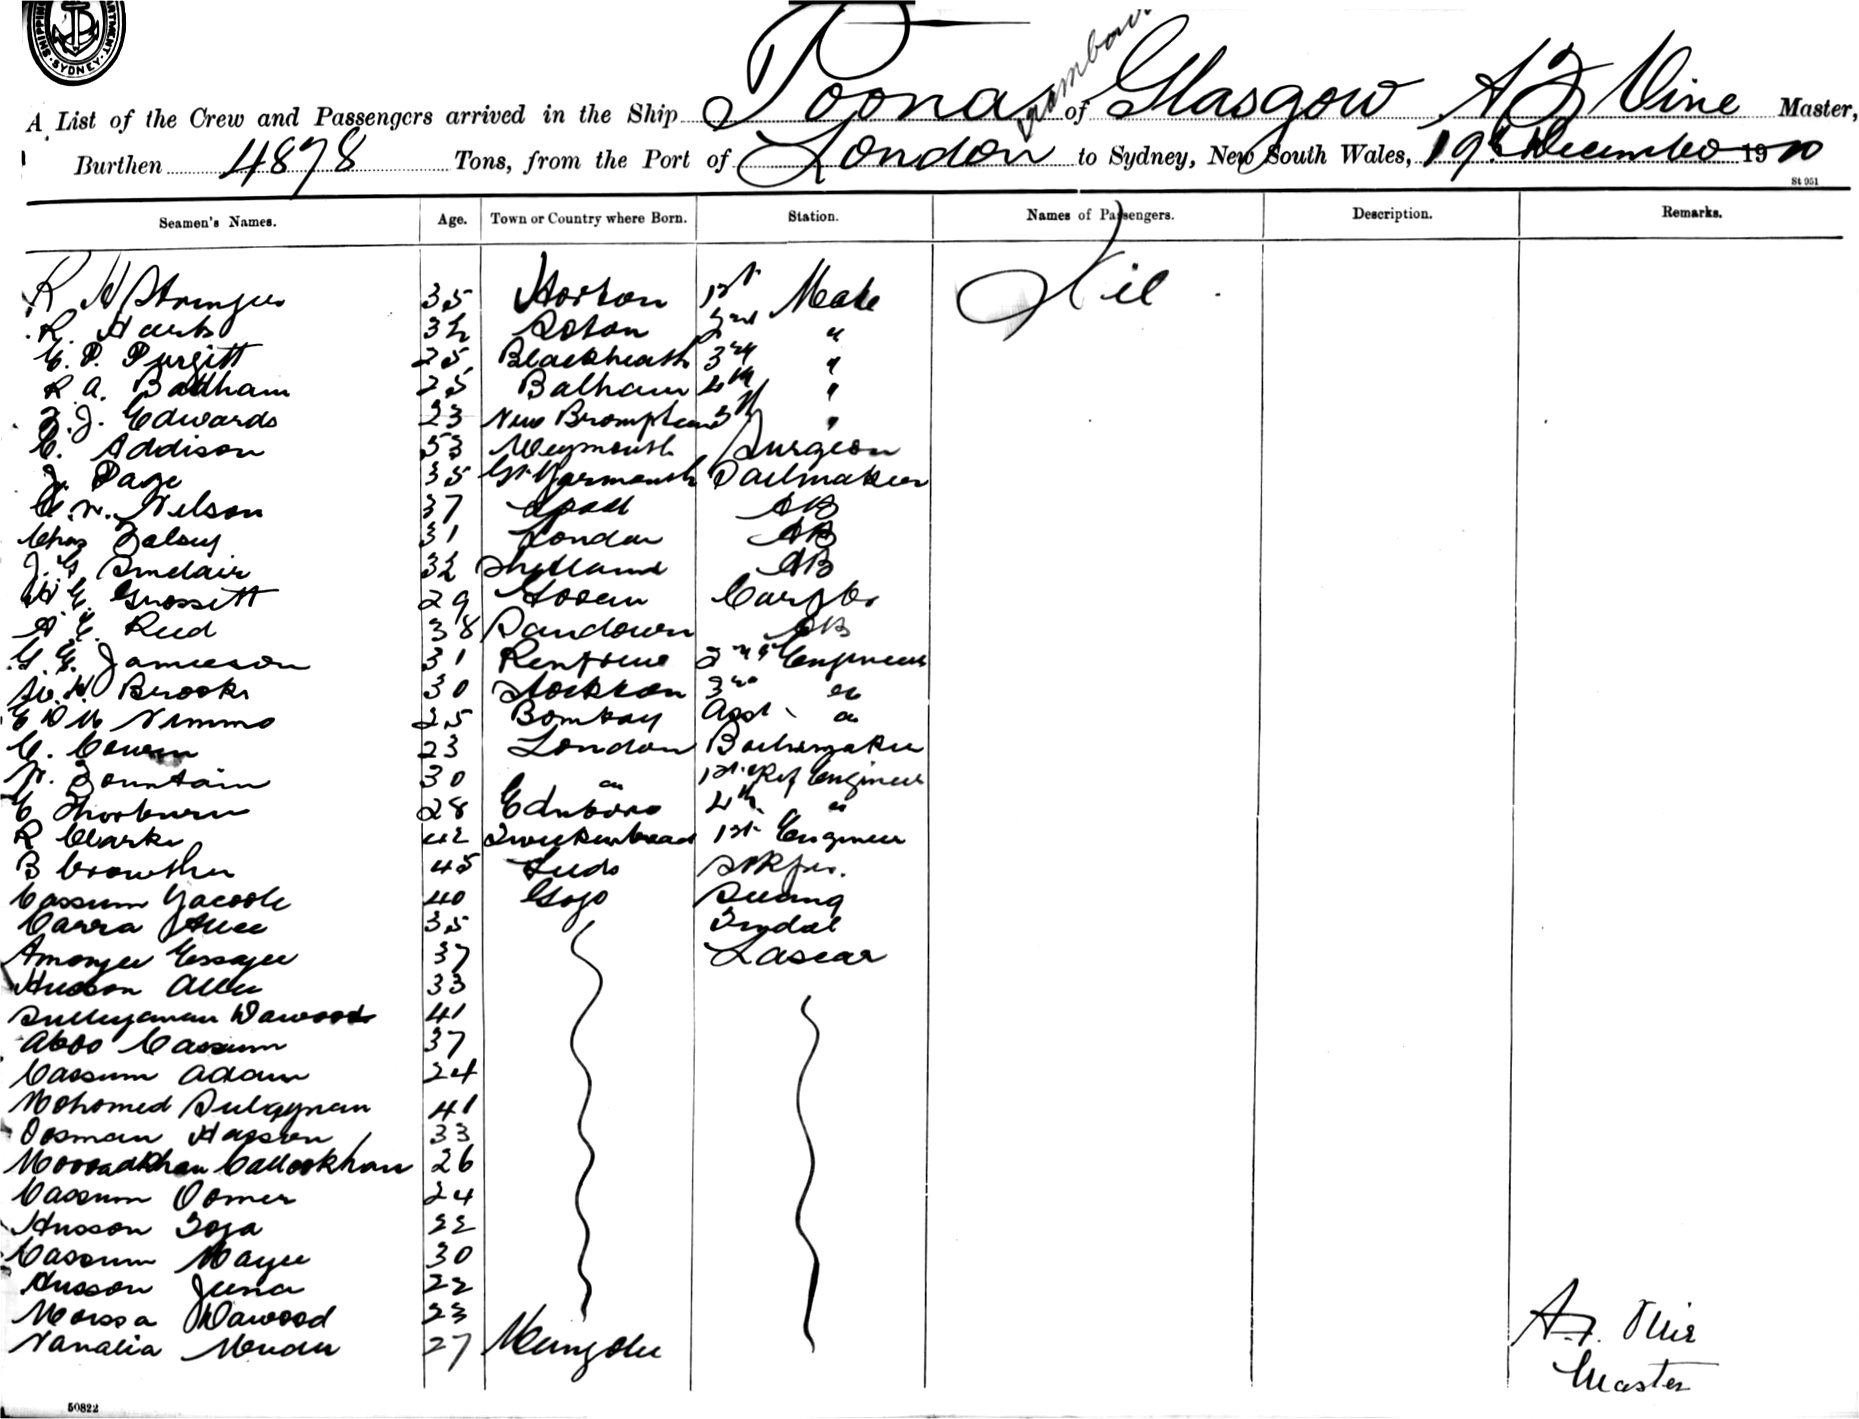 SHIPPING DEPARTMENT SYDNEY
A List of the Crew and Passengers arrived in the Ship Poona of Glasgow A F Vine Master,
Burthen 4878 Tons, from the Port of London to Sydney, New South Wales, 19th December 1910
St 951
Seamen's Names. Age. Town or Country where Born. Station. Names of Passengers. Description. Remarks.
R H Stringer 35 Horton 1st Mate Nil
R. Harts 32 Acton 2nd "
C. P. Purgitt 25 Blackheath 3rd "
R A. Badham 25 Balham 4th "
F. J. Edwards 23 New Brompton 5th "
C. Addison 53 Weymouth Surgeon
J. Page 35 Gt Yarmouth Sailmaker
C. W. Nelson 37 AB
Chas 31 London AB
J. G. Sinclair 32 Shetland AB
W. E. Grossett 29 Govan Carptr
A E. Reed 38 Sandown AB
G. G. Jamieson 31 Renfrew 2nd Engineer
H. Brooks 30 Stockton 3rd "
E D M Nimmo 25 Bombay Asst "
C. Cowen 23 London Boilermaker
W. Fountain 30 " 1st Ref Engineer
E Thorburn 28 Edinboro 4th "
R Clarke 42 Twickenham 1st Engineer
B Crowther 45 Leeds Strkpr.
Cassum Yacoob 40 Gogo Serang
Carra Allee 35 Tindal
Amonjee Essajee 37 Lascar
Husson Allee 33
Sulleyman Dawood 41
Aboo Cassum 37
Cassum Adam 24
Mohomed Suleyman 41
Oosman Hasson 33
Mooradkhan Callookhan 26
Cassum Oomer 24
Husson 22
Cassum Mayee 30
Husson Juna 22
Moossa Dawood 23
27
A. F. Vine
Master
50822